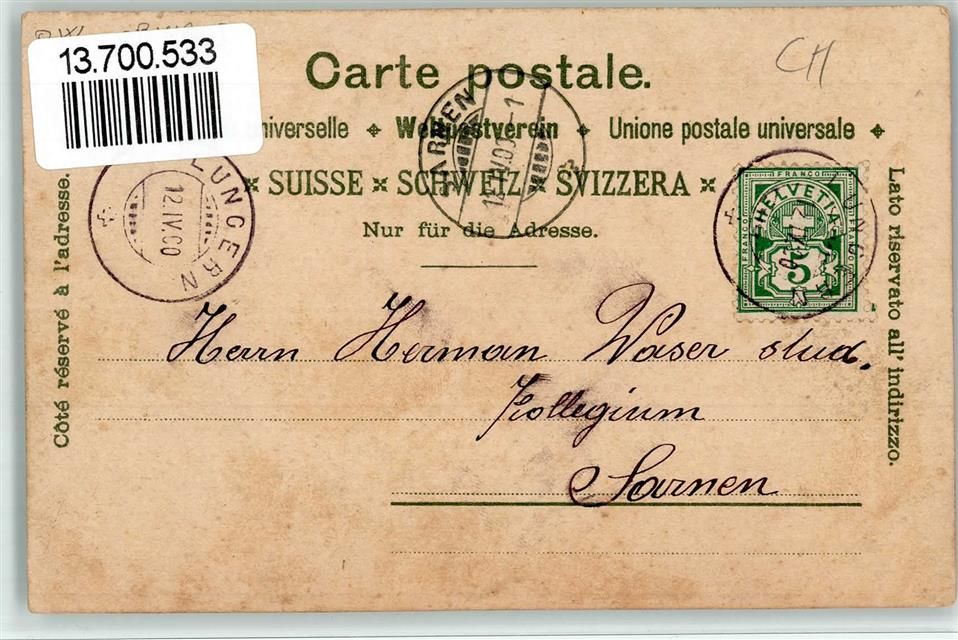 13.700.533
CH
Carte postale.
universelle ✦ Weltpostverein ✦ Unione postale universale ✦
× SUISSE × SCHWEIZ × SVIZZERA ×
Nur für die Adresse.
Côté réservé à l'adresse.
Lato riservato all' indirizzo.
LUNGERN
12.IV.00
SARNEN
12.IV.00 -1
LUNGERN
FRANCO
HELVETIA
FRANCO
FRANCO
5
Herrn Herman Waser stud.
Kollegium
Sarnen